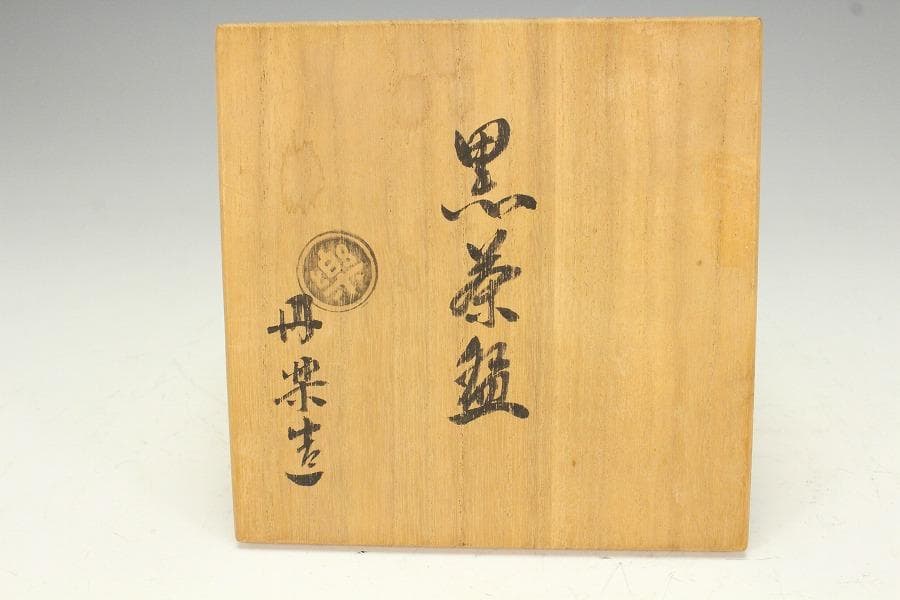 黒茶盌
樂
丹楽造